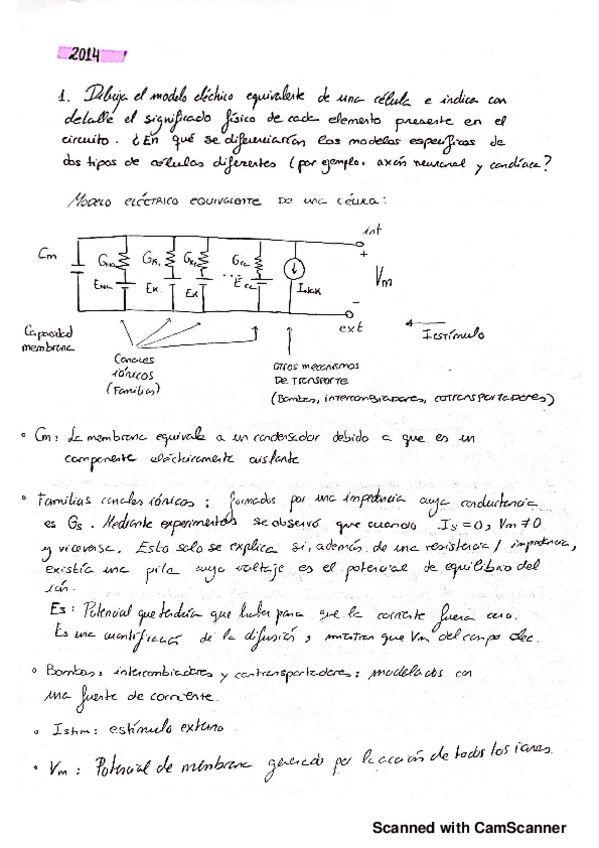 2014
1. Dibuja el modelo eléctrico equivalente de una célula e indica con
detalle el significado físico de cada elemento presente en el
circuito. ¿En qué se diferenciarían los modelos específicos de
dos tipos de células diferentes (por ejemplo: axón neuronal y cardíaca?
MODELO ELÉCTRICO EQUIVALENTE DE UNA CÉLULA:
int
Cm GNa GK1 GK GCL + Vm
ENa EK EK ... ECL INaK
-
ext
Capacidad
membrana
Iestímulo
Canales
iónicos
(Familias)
OTROS MECANISMOS
DE TRANSPORTE
(Bombas, intercambiadores, cotransportadores)
• Cm: La membrana equivale a un condensador debido a que es un
componente eléctricamente aislante
• Familias canales iónicos: formados por una impedancia cuya conductancia
es Gs. Mediante experimentos se observó que cuando Is=0, Vm≠0
y viceversa. Esto solo se explica si, además de una resistencia / impedancia,
existía una pila cuyo voltaje es el potencial de equilibrio del
ión.
Es: Potencial que tendría que haber para que la corriente fuera cero.
Es una cuantificación de la difusión, mientras que Vm del campo elec.
• Bombas, intercambiadores y contransportadores: modelados con
una fuente de corriente.
• Istm: estímulo externo
• Vm: Potencial de membrana generado por la acción de todos los iones.
Scanned with CamScanner